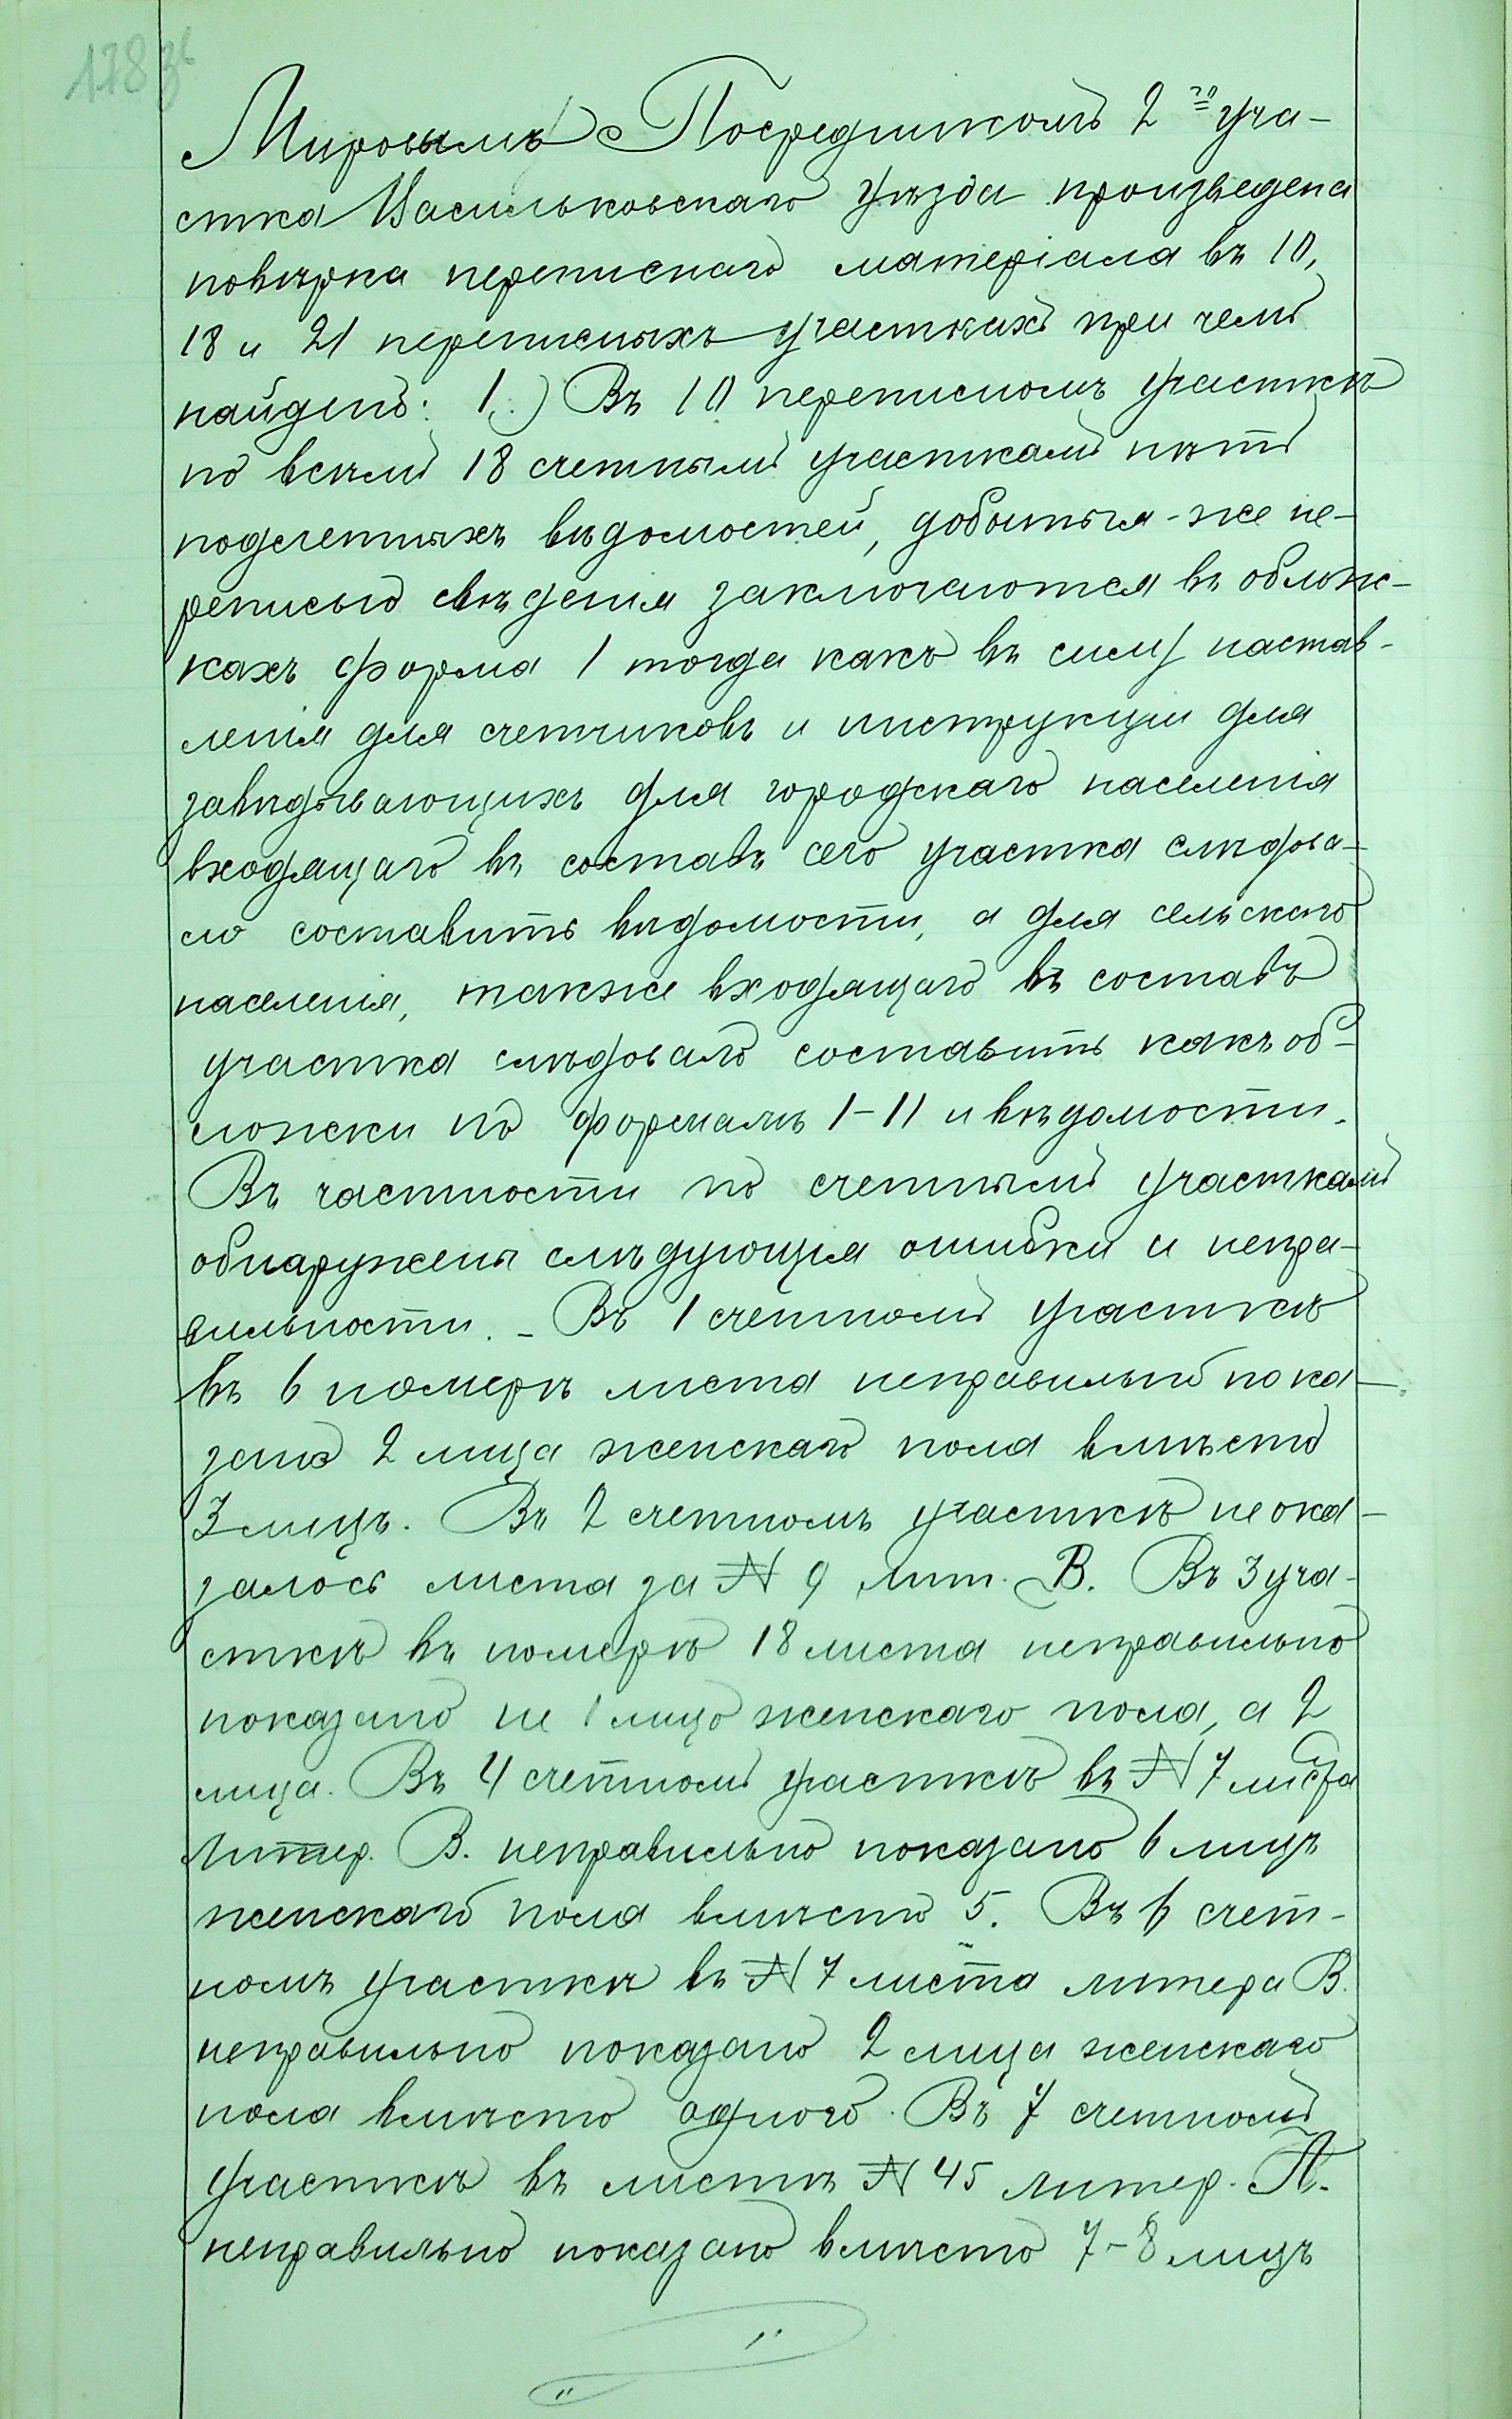 178 зв
Мировымъ Посредникомъ 2го уча-
стка Васильковскаго уѣзда произведена
повѣрка переписнаго матеріала въ 10,
18 и 21 переписныхъ участкахъ при чемъ
найдено: 1.) Въ 10 переписномъ участкѣ
по всѣмъ 18 счетнымъ участкамъ нѣтъ
подсчетныхъ вѣдомостей, добытыя-же пе-
реписью свѣденія заключаются въ облож-
кахъ форма 1 тогда какъ въ силу настав-
ленія для счетчиковъ и инструкціи для
завѣдывающихъ для городскаго населенія
входящаго въ составъ сего участка слѣдова-
ло составить вѣдомости, а для сельскаго
населенія, также входящаго въ составъ
участка слѣдовало составить какъ об-
ложки по формамъ 1-11 и вѣдомости.
Въ частности по счетнымъ участкамъ
обнаружены слѣдующія ошибки и непра-
вильности. - Въ 1 счетномъ участкѣ
въ 6 номерѣ листа неправильно пока-
зано 2 лица женскаго пола вмѣсто
3 лицъ. Въ 2 счетномъ участкѣ не ока-
залось листа за № 9 лит. В. Въ 3 уча-
сткѣ въ номерѣ 18 листа неправильно
показано не 1 лицо женскаго пола, а 2
лица. Въ 4 счетномъ участкѣ въ № 7 листа
Литер. В. неправильно показано 6 лицъ
женскаго пола вмѣсто 5. Въ 6 счет-
номъ участкѣ въ № 7 листа литера В.
неправильно показано 2 лица женскаго
пола вмѣсто одного. Въ 7 счетномъ
участкѣ въ листѣ № 45 литер. А.
неправильно показано вмѣсто 7-8 лицъ